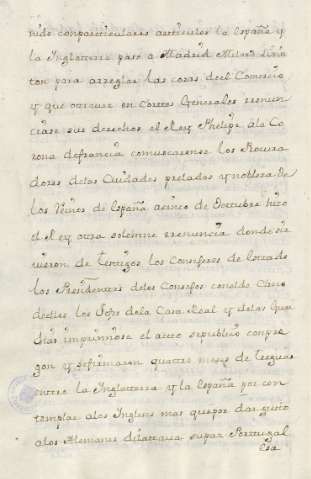 nido con particulares articulos la España y
la Inglaterra pasó a Madrid Milord
ton para arreglar las cosas del Comercio
y que otorcase en Cortes Generales renun
ciase sus derechos el Rey Phelipe ala Co
rona de francia comuocaronse los Procura
dores delas Ciudades prelados y nobleza de
los Reinos de España acinco de Octubre hizo
el Rey otra solemne renuncia donde sir
uieron de testigos los Consejeros de estado
los Presidentes delos Consejos
los Jefes dela Casa Real y delas Guar
dias imprimiose el acto republico conpre
gon y se firmaron quatro meses de treguas
entre la Inglaterra y la España por con
templar alos Ingleses mas quepor dar gusto
alos Alemanes dilataua su paz Portugal